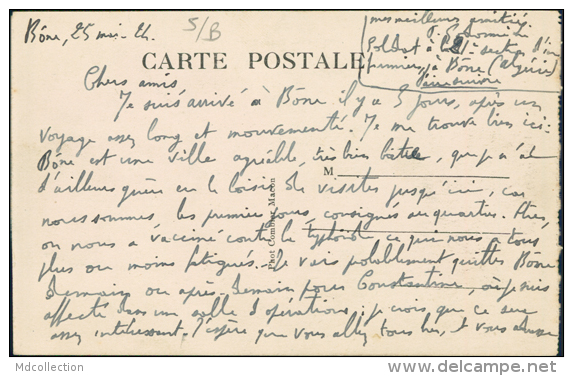 Bône, 25 mai. 24.
S/B
CARTE POSTALE
mes meilleurs amitiés
Soldat à la section d'in
firmiers, à Bône (Algérie)
Faire suivre
Chers amis
Je suis arrivé à Bône il y a 5 jours, après un
voyage assez long et mouvementé. Je me trouve bien ici.
Bône est une ville agréable, très bien bâtie, que je n'ai
d'ailleurs guère eu le loisir de visiter jusqu'ici, car
nous sommes les premiers jours consignés au quartier.
M
on nous a vacciné contre la typhoïde ce qui nous a tous
plus ou moins fatigués. Je vais probablement quitter Bône
demain ou après-demain pour Constantine, où je suis
affecté dans une salle d'opérations; je crois que ce sera
assez intéressant. J'espère que vous allez tous bien, et vous
Phot Combier Macon
Mdcollection
http://www.delcampe.net